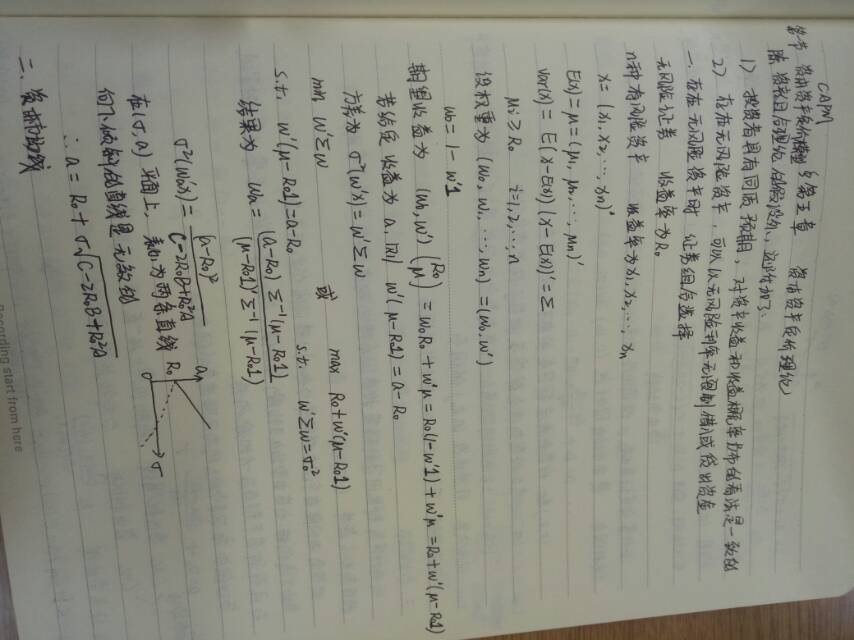 CAPM
第一节 资本资产定价模型 (第五章 资本资产定价理论)
除资产组合理论的假设外, 还附加了:
1) 投资者具有同质预期, 对资产收益和收益概率分布的看法是一致的
2) 存在无风险资产, 可以以无风险利率无限制借入或贷出资金
一、存在无风险资产时 证券组合选择
无风险证券 收益率为R₀
n种有风险资产 收益率为x₁, x₂, …, xn
x = (x₁, x₂, …, xn)'
E(x) = μ = (μ₁, μ₂, …, μn)'
var(x) = E(x-E(x))(x-E(x))' = Σ
μi ≥ R₀ i=1,2,…,n
设权重为 (w₀, w₁, …, wn) = (w₀, w')
w₀ = 1 - w'1
期望收益为 (w₀, w')(R₀ μ) = w₀R₀ + w'μ = R₀(1-w'1) + w'μ = R₀ + w'(μ-R₀1)
若给定 收益为 a, 则 w'(μ-R₀1) = a-R₀
方差为 σ²(w'x) = w'Σw
min w'Σw 或 max R₀+w'(μ-R₀1)
s.t. w'(μ-R₀1)=a-R₀ s.t. w'Σw=σ₀²
结果为 wa = (a-R₀)Σ⁻¹(μ-R₀1) / (μ-R₀1)'Σ⁻¹(μ-R₀1)
σ²(w'ax) = (a-R₀)² / C-2R₀B+R₀²A
在(σ, a) 平面上, 表示为两条直线
a R₀ 0 σ
向下倾斜的直线是无效的
∴ a = R₀ + σ√C-2R₀B+R₀²A
二、资本市场线
Recording start from here